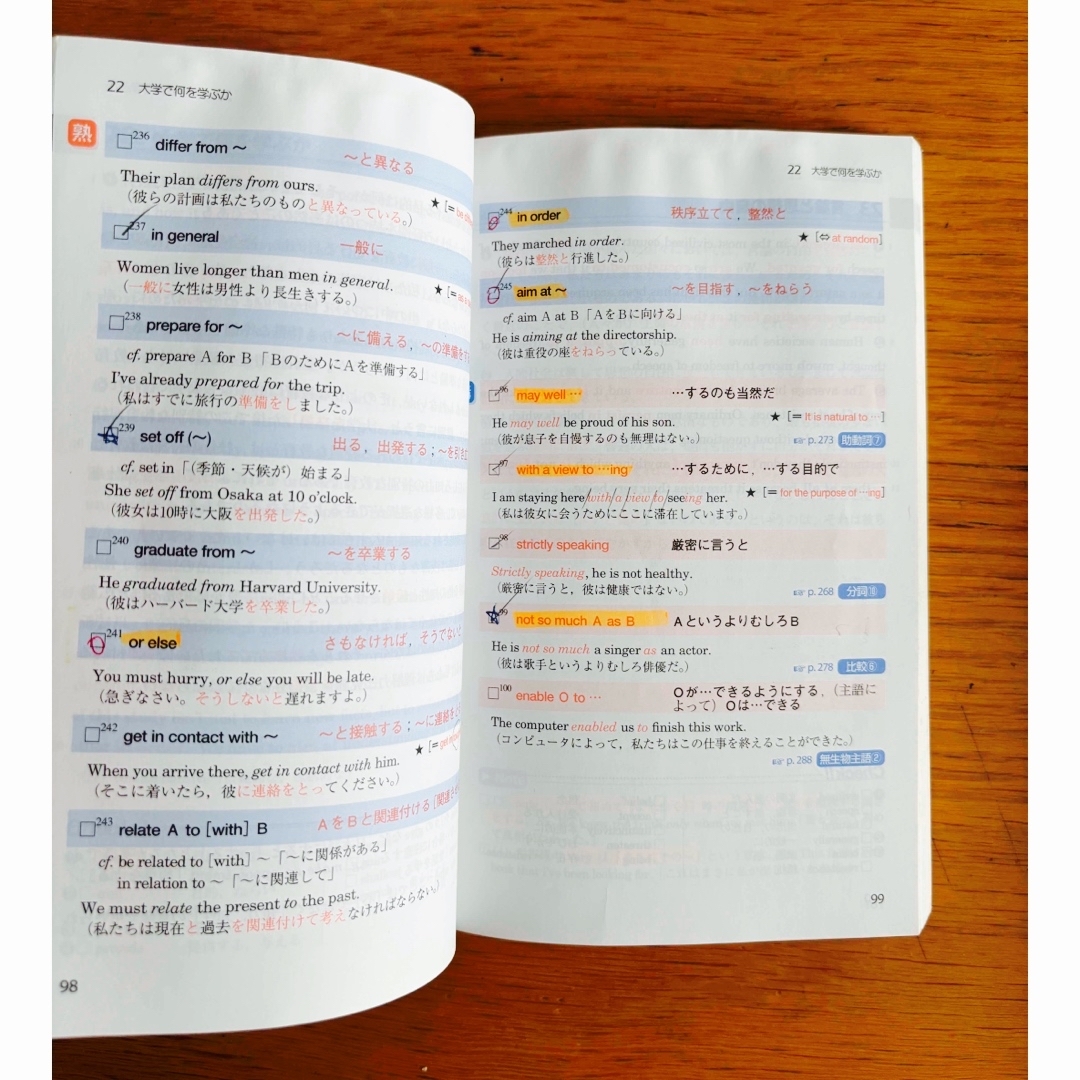 22 大学で何を学ぶか
熟
236 differ from ～ ～と異なる
Their plan differs from ours.
（彼らの計画は私たちのものと異なっている。） ★ [=
237 in general 一般に
Women live longer than men in general.
（一般に女性は男性より長生きする。） ★ [=
238 prepare for ～ ～に備える，～の準備を
cf. prepare A for B「BのためにAを準備する」
I've already prepared for the trip.
（私はすでに旅行の準備をしました。）
239 set off (～) 出る，出発する；～を引き
cf. set in「（季節・天候が）始まる」
She set off from Osaka at 10 o'clock.
（彼女は10時に大阪を出発した。）
240 graduate from ～ ～を卒業する
He graduated from Harvard University.
（彼はハーバード大学を卒業した。）
241 or else さもなければ，そうでない
You must hurry, or else you will be late.
（急ぎなさい。そうしないと遅れますよ。）
242 get in contact with ～ ～と接触する；～に連絡を
★ [=
When you arrive there, get in contact with him.
（そこに着いたら，彼に連絡をとってください。）
243 relate A to [with] B AをBと関連付ける
cf. be related to [with] ～「～に関係がある」
in relation to ～「～に関連して」
We must relate the present to the past.
（私たちは現在と過去を関連付けて考えなければならない。）
98
22 大学で何を学ぶか
244 in order 秩序立てて，整然と
They marched in order. ★ [⇔ at random]
（彼らは整然と行進した。）
245 aim at ～ ～を目指す，～をねらう
cf. aim A at B「AをBに向ける」
He is aiming at the directorship.
（彼は重役の座をねらっている。）
96 may well … …するのも当然だ
He may well be proud of his son. ★ [= It is natural to …]
（彼が息子を自慢するのも無理はない。） ☞ p.273 助動詞⑦
97 with a view to …ing …するために，…する目的で
I am staying here with a view to seeing her. ★ [= for the purpose of …ing]
（私は彼女に会うためにここに滞在しています。）
98 strictly speaking 厳密に言うと
Strictly speaking, he is not healthy.
（厳密に言うと，彼は健康ではない。） ☞ p.268 分詞⑩
99 not so much A as B AというよりむしろB
He is not so much a singer as an actor.
（彼は歌手というよりむしろ俳優だ。） ☞ p.278 比較⑥
100 enable O to … Oが…できるようにする，（主語に
よって）Oは…できる
The computer enabled us to finish this work.
（コンピュータによって，私たちはこの仕事を終えることができた。）
☞ p.288 無生物主語②
99